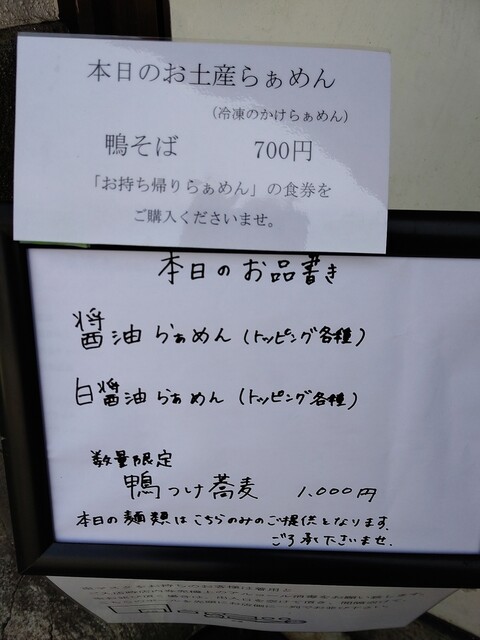 本日のお土産らぁめん
（冷凍のかけらぁめん）
鴨そば 700円
「お持ち帰りらぁめん」の食券を
ご購入くださいませ。
本日のお品書き
醤油らぁめん（トッピング各種）
白醤油らぁめん（トッピング各種）
数量限定
鴨つけ蕎麦 1,000円
本日の麺類はこちらのみのご提供となります。
ご了承下さいませ。